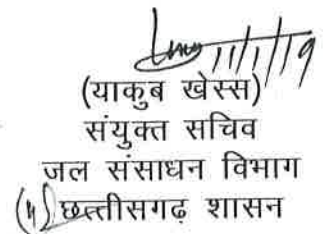 11/1/19
(याकुब खेस्स)
संयुक्त सचिव
जल संसाधन विभाग
छत्तीसगढ़ शासन